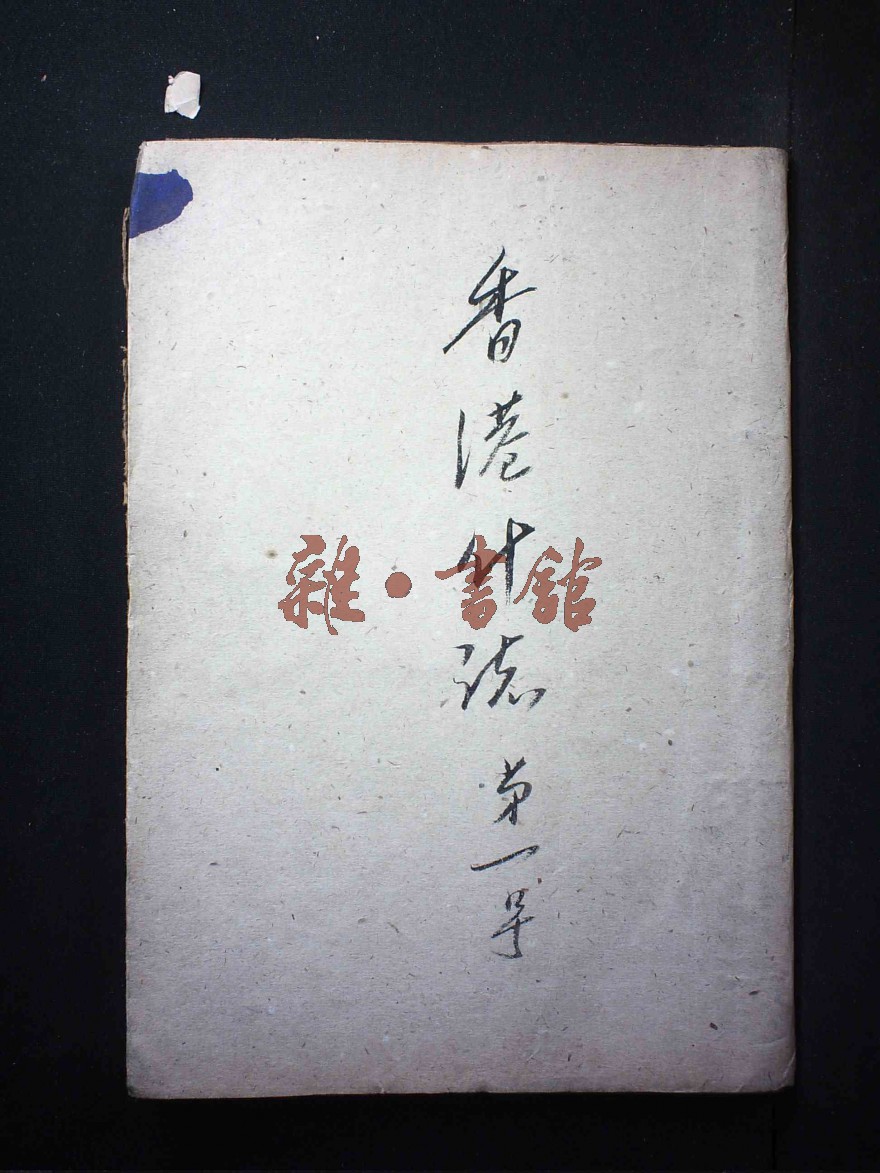 香港什誌 第一号
雜·書館